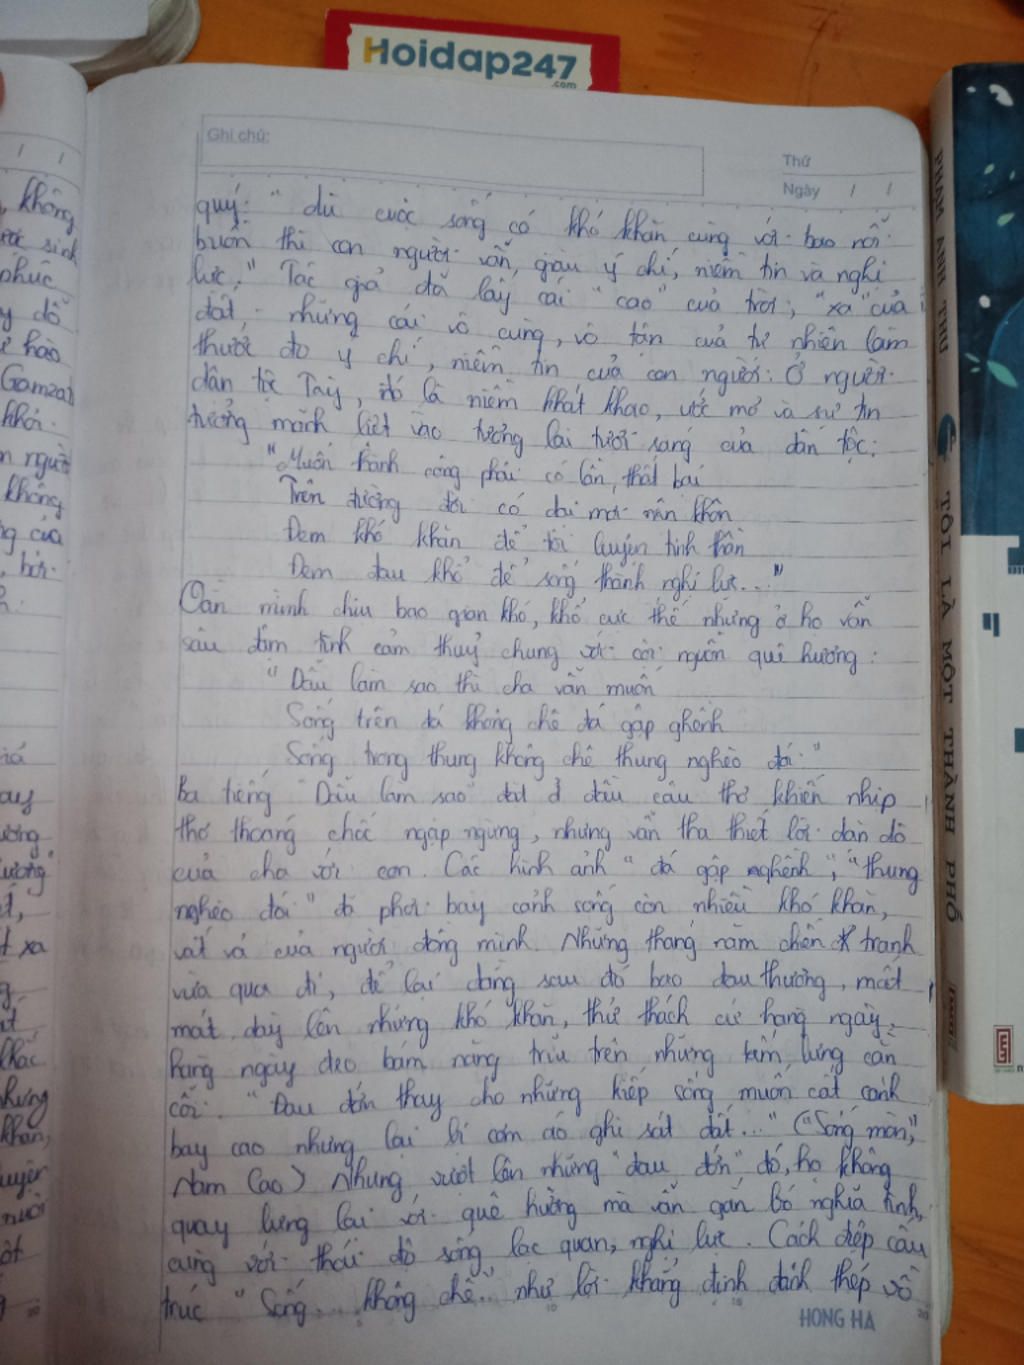 Hoidap247
.com
Ghi chú:
Thứ
Ngày / /
quý: "dù cuộc sống có khó khăn cùng với bao nỗi
buồn thì con người vẫn giàu ý chí, niềm tin và nghị
lực." Tác giả đã lấy cái "cao" của trời, "xa" của
đất - những cái vô cùng, vô tận của tự nhiên làm
thước đo ý chí, niềm tin của con người. Ở người
dân tộc Tày, đó là niềm khát khao, ước mơ và sự tin
tưởng mãnh liệt vào tương lai tươi sáng của dân tộc:
"Muốn thành công phải có lần thất bại
Trên đường đời có dại mới nên khôn
Đem khó khăn để tôi luyện tinh thần
Đem đau khổ để sống thành nghị lực..."
Oằn mình chịu bao gian khó, khổ cực thế nhưng ở họ vẫn
sâu đậm tình cảm thuỷ chung với cội nguồn quê hương:
"Dẫu làm sao thì cha vẫn muốn
Sống trên đá không chê đá gập ghềnh
Sống trong thung không chê thung nghèo đói."
Ba tiếng "Dẫu làm sao" đặt ở đầu câu thơ khiến nhịp
thơ thoáng chốc ngập ngừng, nhưng vẫn tha thiết lời dặn dò
của cha với con. Các hình ảnh "đá gập nghềnh", "thung
nghèo đói" đã phơi bày cảnh sống còn nhiều khó khăn,
vất vả của người đồng mình. Những tháng năm chiến tranh
vừa qua đi, để lại đằng sau đó bao đau thương, mất
mát, dấy lên những khó khăn, thử thách cứ hàng ngày,
hàng ngày đeo bám nặng trĩu trên những tấm lưng cằn
cỗi. "Đau đớn thay cho những kiếp sống muốn cất cánh
bay cao nhưng lại bị cơm áo ghì sát đất..." ("Sống mòn",
Nam Cao) Nhưng vượt lên những "đau đớn" đó, họ không
quay lưng lại với quê hương mà vẫn gắn bó nghĩa tình,
cùng với thái độ sống lạc quan, nghị lực. Cách điệp cấu
trúc "Sống... không chê.." như lời khẳng định đanh thép về
HONG HA
PHẠM ANH THƯ
TÔI LÀ MỘT THÀNH PHỐ